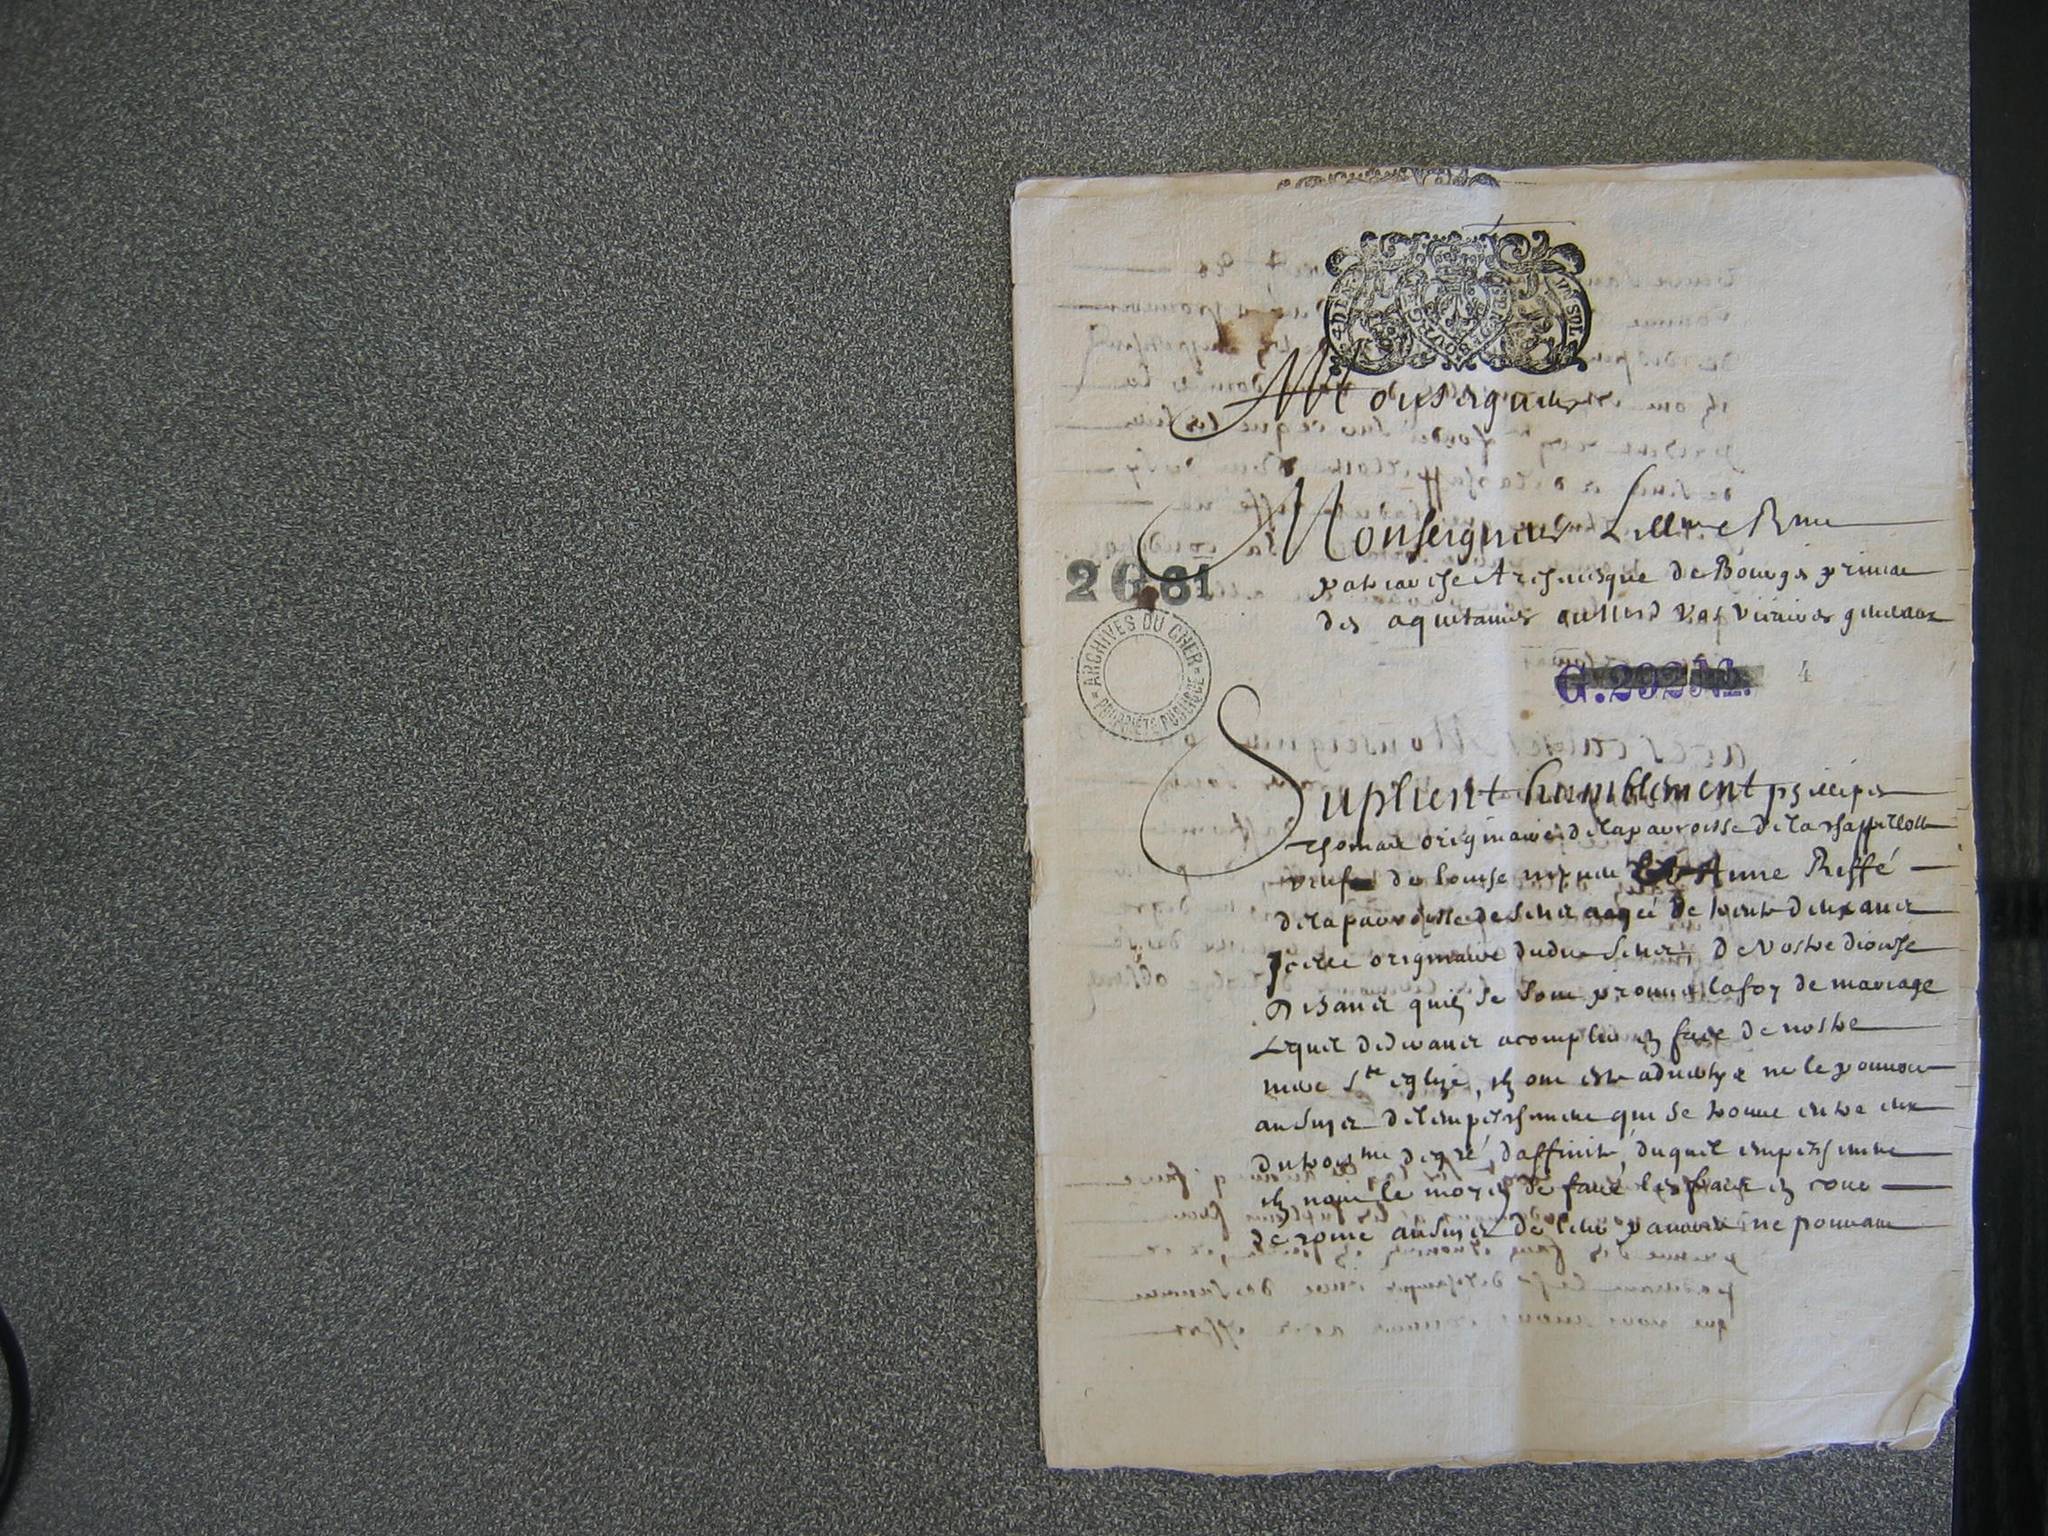 Monseigneur
Monseigneur Lill.me et R.me
patriarche Archevesque de Bourges primat
des aquitaines ou Mrs vos vicaires generaux
2 G 81
ARCHIVES DU CHER
PROPRIÉTÉ PUBLIQUE
G. 202 M.
4
Suplient humblement philipes
thomas originaire de la parroisse de la chappellotte
veuf de louise Et Anne Reffé
de la parroisse de Sener aagée de trente deux ans
icelle originaire dudit Sener, de vostre diocese
Disant quilz se sont promis la foy de mariage
Lequel desirant acomplir en face de nostre
mere Ste eglize, ilz ont esté advertys ne le pouvoir
au suject de lempeschement qui se trouve entre eux
du troisme degré daffinité, duquel empeschement
ilz nont le moyen de faire les frais en cour
de rome au suject de leur pauvreté ne pouvant